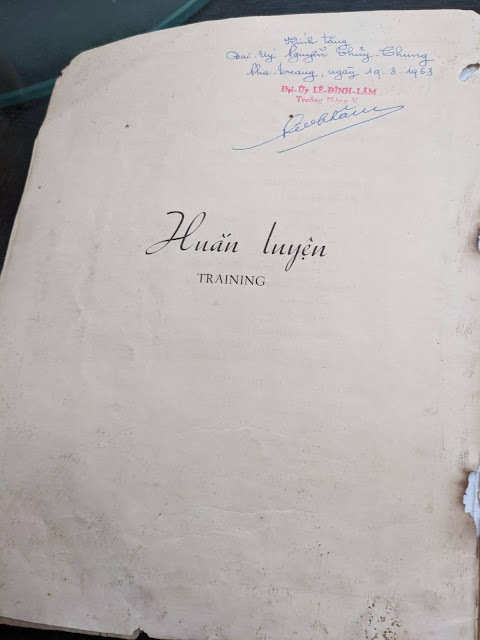 Kính tặng
Đại-Úy Nguyễn Thủy-Chung
Nha-trang, ngày 19.3.1963
Đại-Úy LÊ-ĐÌNH-LÂM
Trưởng Phòng V
Huấn luyện
TRAINING